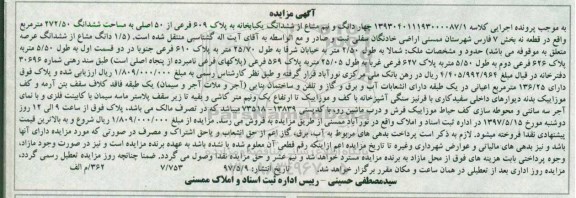 آگهی مزایده
به موجب پرونده اجرایی کلاسه ۱۳۹۳۰۴۰۱۱۱۹۳۰۰۰۰۸۷/۱ چهار دانگ و نیم مشاع از ششدانگ یکبابخانه به پلاک ۶۰۹ فرعی از ۵۰ اصلی به مساحت ششدانگ ۲۷۲/۵۰ مترمربع
واقع در قطعه نه بخش ۷ فارس شهرستان ممسنی اراضی خادنگان سفلی ثبت و صادر و مع الواسطه به آقای آیت اله گشتاسبی منتقل شده است. (۱/۵ دانگ مشاع از ششدانگ عرصه
متعلق به موقوفه می باشد) حدود و مشخصات ملک: شمالا به طول ۲/۵۰ متر به خیابان شرقا به طول ۲۵/۷۰ متر به پلاک ۶۱۰ فرعی جنوبا در دو قسمت اول به طول ۵/۵۰ به
پلاک ۶۲۶ فرعی دوم به طول ۵/۵۰ به پلاک ۶۲۷ فرعی غربا به طول ۲۵/۰۵ متر به پلاک ۵۶۹ فرعی (پلاکهای فرعی نامبرده از پنجاه اصلی است) طبق سند رهنی شماره ۳۰۶۹۶
دفترخانه در قبال مبلغ ۲/۴۰۵/۹۹۲/۹۶۴ ریال در رهن بانک ملی مرکزی نورآباد قرار گرفته و طبق نظر کارشناس رسمی به مبلغ ۱/۸۰۹/۰۰۰/۰۰۰ ریال ارزیابی شده و پلاک فوق
دارای ۱۳۶/۲۵ مترمربع اعیانی در یک طبقه دارای انشعابات آب و برق و گاز و تلفن و ساختمان بنایی (آجر و ملات آجر و سیمان) یک طبقه فاقد کلاف سقف بتن آرمه و کف
موزاییک بدنه دیوارهای داخلی سفیدکاری با قرنیز سنگی آشپزخانه با کف و موزاییک تا ارتفاع یک ونیم متر کاشی و بقیه تا زیر سقف پلاستر ماسه سیمان با کابینت فلزی و با نمای
آجر سه سانتی و محوطه سازی کف حیاط موزاییک فرش و درب ماشین رو با کدپستی ۱۷۸۳۹-۷۳۵۱۸ میباشد که در تصرف مالک می باشد، پلاک فوق از ساعت ۹ الی ۱۲ روز
دوشنبه مورخ ۱۳۹۷/۵/۱۵ در اداره ثبت اسناد و املاک واقع در نورآباد ممسنی از طریق مزایده به فروش می رسد. مزایده از مبلغ ۱/۸۰۹/۰۰۰/۰۰۰ ریال شروع و به بالاترین قیمت
پیشنهادی نقدا فروخته میشود. لازم به ذکر است پرداخت بدهی های مربوط به آب، برق، گاز اعم از حق انشعاب و یاحق اشتراک و مصرف در صورتی که مورد مزایده دارای آنها
باشد و نیز بدهی های مالیاتی و عوارض شهرداری وغیره تا تاریخ مزایده اعم ازاینکه رقم قطعی آن معلوم شده یا نشده باشد به عهده برنده مزایده است و نیز در صورت وجود مازاد،
وجوه پرداختی بابت هزینه های فوق از محل مازاد به برنده مزایده مسترد خواهد شد و نیم عشر و حق مزایده نقدا وصول می گردد. ضمنا چنانچه روز مزایده تعطیل رسمی گردد،
مزایده روز اداری بعد از تعطیلی در همان ساعت و مکان مقرر برگزار خواهد شد. تاریخ انتشار: ۹۷/۵/۹ ۷/۷۵۳ ۳۶۲/م الف
سیدمصطفی حسینی – رییس اداره ثبت اسناد و املاک ممسنی